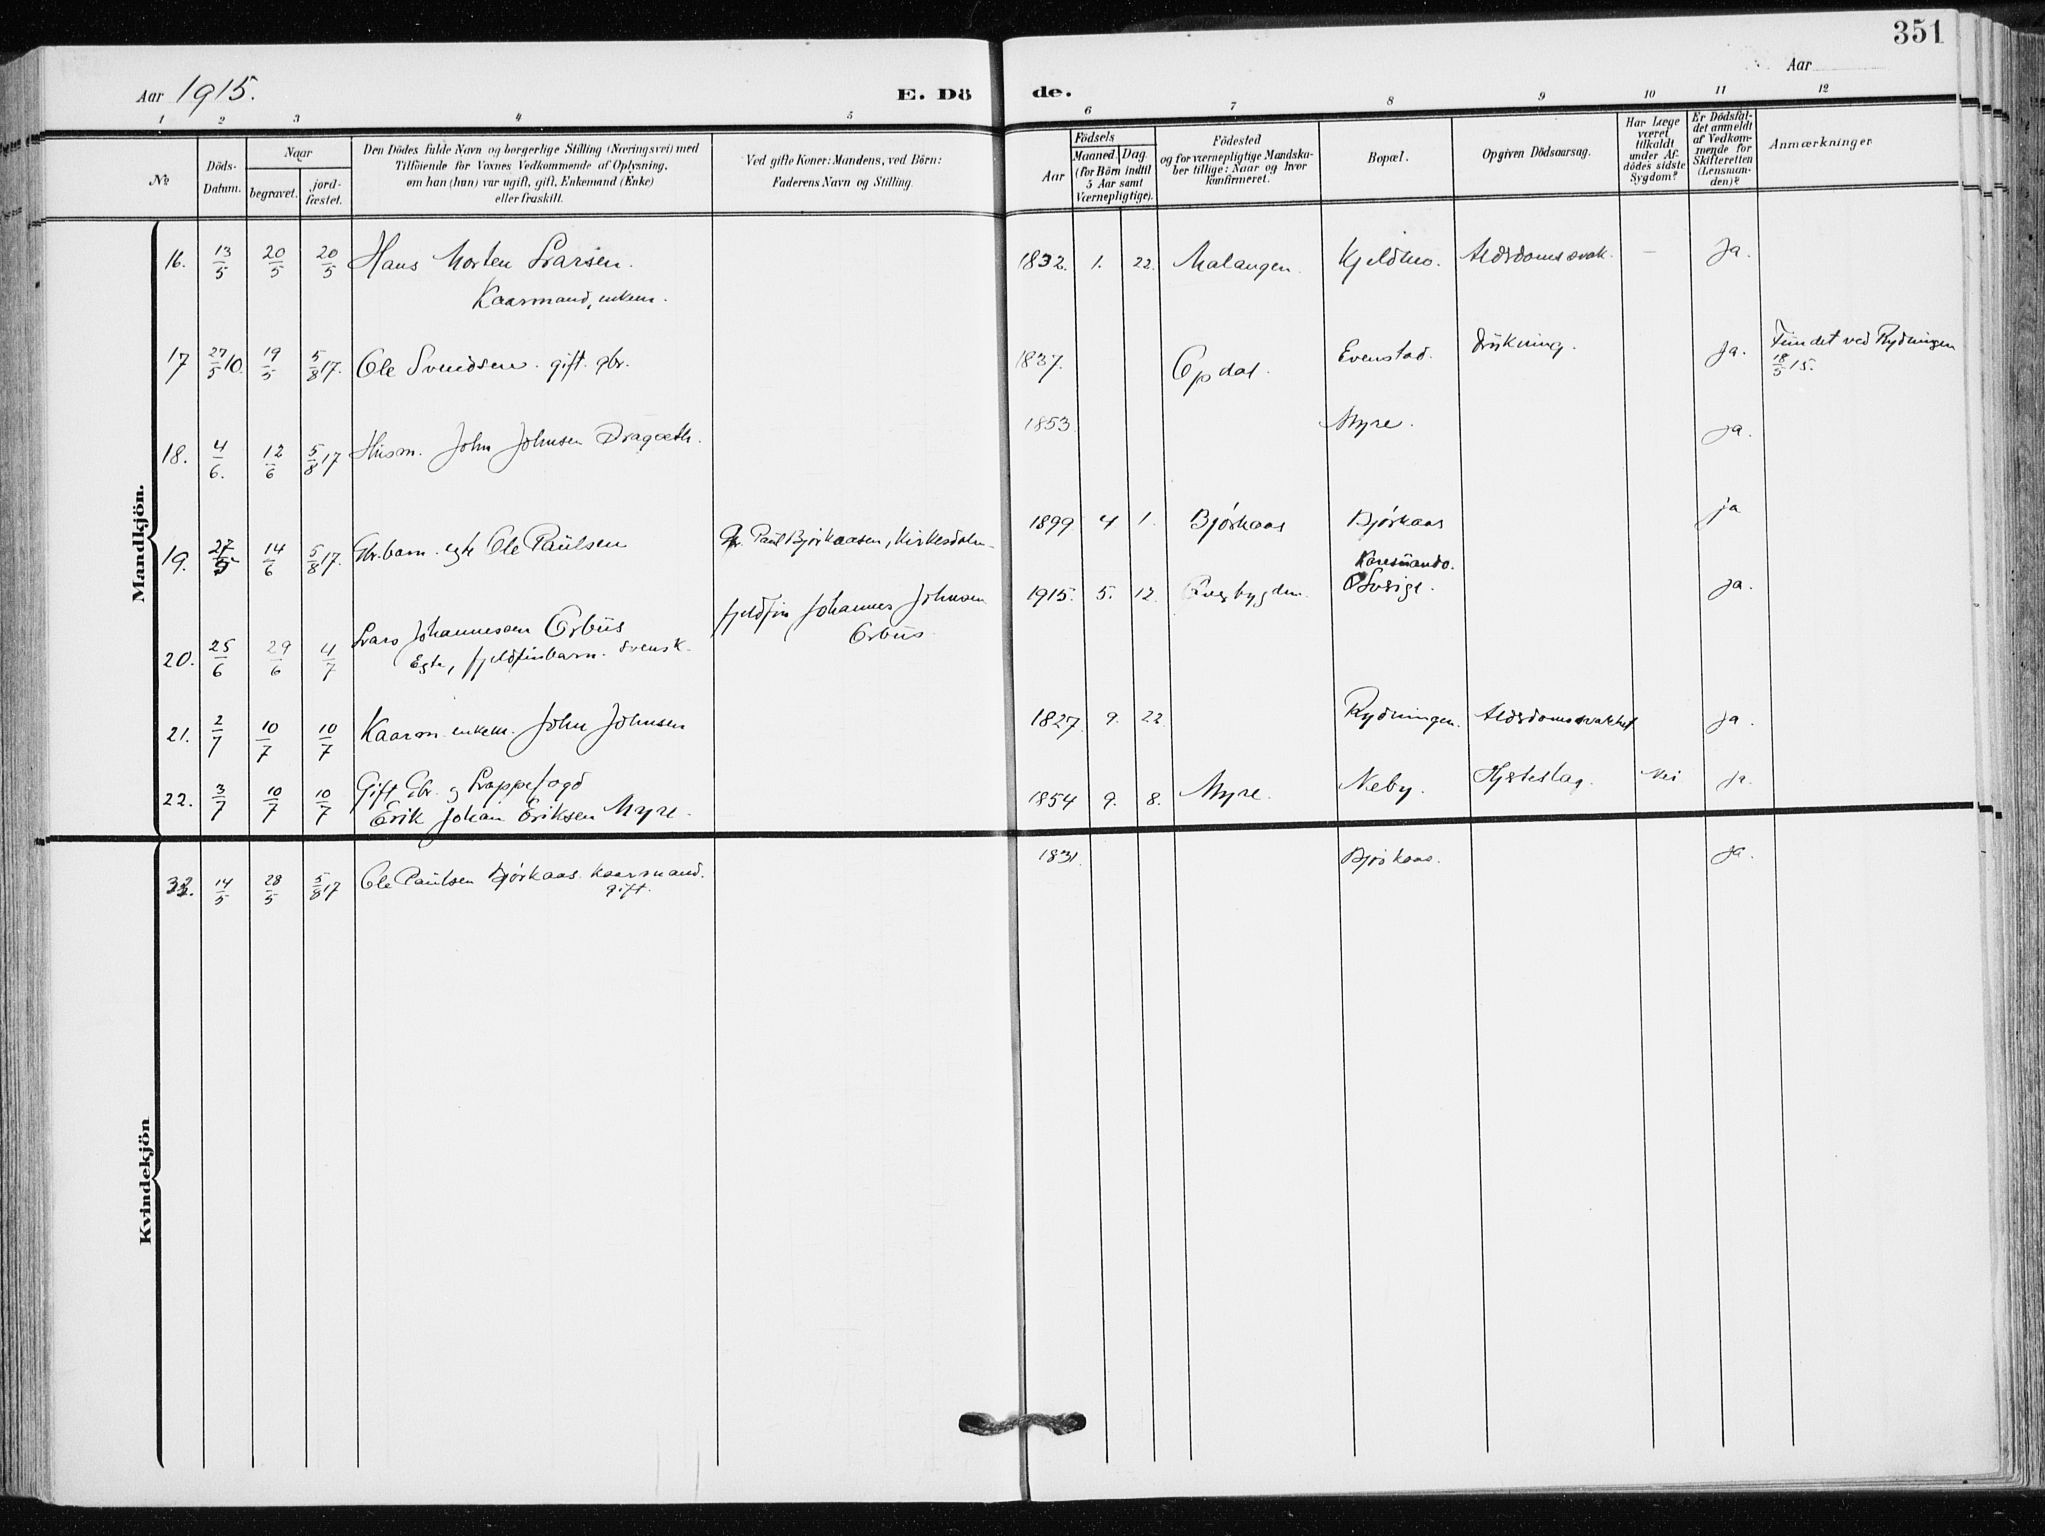 351
Aar 1915.
E. Dö de.
Aar
1 2 3 4 5 6 7 8 9 10 11 12
№
Döds-Datum.
Naar
begravet.
jord-fæstet.
Den Dödes fulde Navn og borgerlige Stilling (Næringsvei) med
Tilföiende for Voxnes Vedkommende af Oplysning,
om han (hun) var ugift, gift, Enkemand (Enke)
eller fraskilt.
Ved gifte Koner: Mandens, ved Börn:
Faderens Navn og Stilling.
Födsels
Aar
Maaned.
Dag.
(for Börn indtil
5 Aar samt
Værnepligtige).
Födested
og for værnepligtige Mandska-
ber tillige: Naar og hvor
konfirmeret.
Bopæl.
Opgiven Dödsaarsag.
Har Læge
været
tilkaldt
under Af-
dödes sidste
Sygdom?
Er Dödsfal-
det anmeldt
af Vedkom-
mende for
Skifteretten
(Lensman-
den)?
Anmærkninger
Mandkjön.
16. 13/5 20/5 20/5 Hans Morten Larsen. 1832. 1. 22. Malangen. Kjeldmo. Alderdomssvak. — Ja.
Kaarmand, enkem.
17 27/5 10. 19/5 5/8 17. Ole Svendsen. gift. gbr. 1837. Opdal. Evenstad. Drukning. Ja. Fundet ved Rydningen
18/5 15.
18. 4/6. 12/6 5/8 17 Husm. John Johnsen Drageeth. 1853. Myre. Ja.
19. 27/5 14/6 5/8 17. Gbr.barn. egte Ole Paulsen Gbr. Paul Bjørkaasen, Kirkesdalen 1899 4 1. Bjørkaas Bjørkaas ja
20. 25/6 29/6 4/7 Lars Johannessen Orbus fjeldfin Johannes Johnsen 1915. 5. 12. Øverbygden. Karesuando. Ja.
Egte, fjeldfinbarn. svensk. Orbus. Sverige.
21. 2/7 10/7 10/7 Kaarm. enkem. John Johnsen 1827. 9. 22. Rydningen. Alderdomssvakhet Ja.
22. 3/7 10/7 10/7 Gift Gbr. og Lappefogd 1854 9. 8. Myre. Neby. Hjerteslag. Nei Ja.
Erik Johan Eriksen Myre.
Kvindekjön
14/5 28/5 5/8 17 Ole Paulsen Bjørkaas. Kaarmand. 1831. Bjørkaas. Ja.
gift.